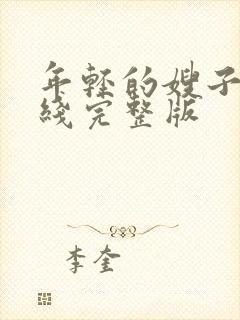 年轻的嫂子
线完整版
李奎